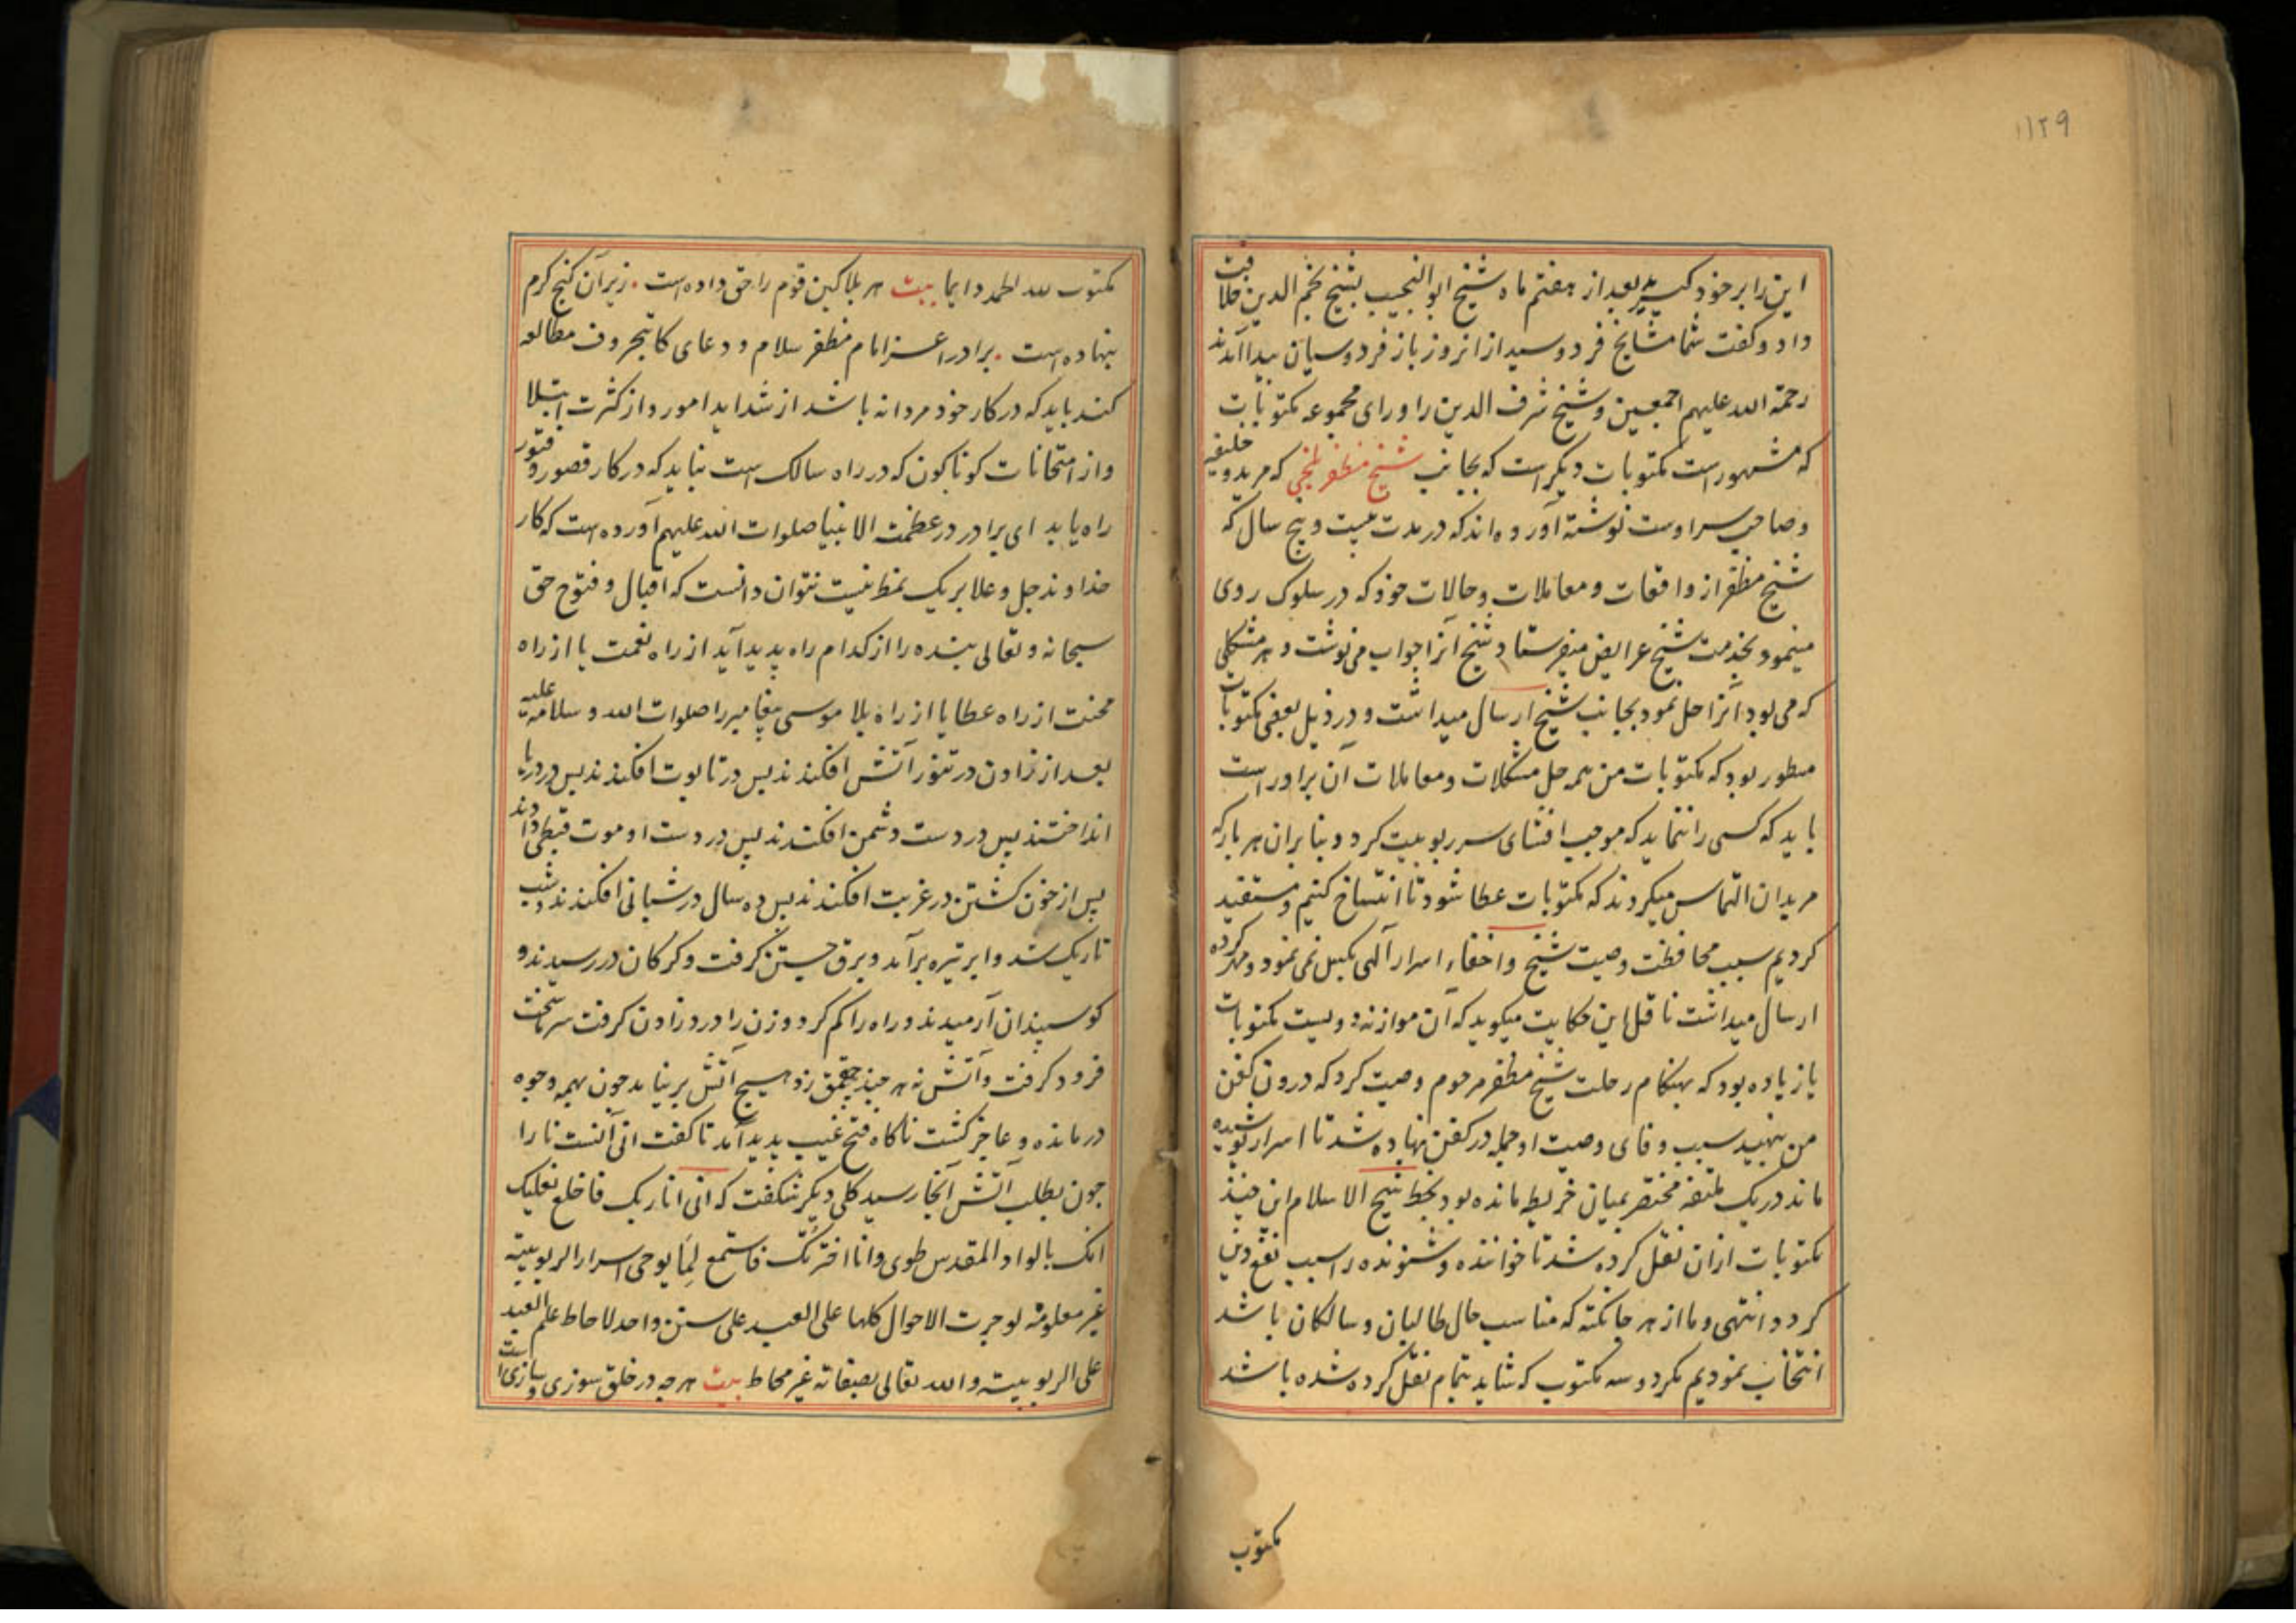 ۱۱۲۹
این را بر خود گیرید بعد از هفتم ماه شیخ ابو النجیب بشیخ نجم الدین خلافت
داد و گفت شما مشایخ فردوسید از انروز باز فردوسیان پیدا آمدند
رحمة الله علیهم اجمعین و شیخ شرف الدین را ورای مجموعه مکتوبات
که مشهور است مکتوبات دیگر است که بجانب شیخ مظفر بلخی که مرید و خلیفه
و صاحب سر اوست نوشته آورده اند که در مدت بیست و پنج سال که
شیخ مظفر از واقعات و معاملات و حالات خود که در سلوک روی
مینمود بخدمت شیخ عرایض میفرستاد و شیخ آنرا جواب می نوشت و هر مشکلی
که می بود آنرا حل نمود بجانب شیخ ارسال میداشت و در ذیل بعضی مکتوبات
مسطور بود که مکتوبات من همه حل مشکلات و معاملات آن برادر است
باید که کسی را ننماید که موجب افشای سر ربوبیت گردد و بنابران هر بار که
مریدان التماس میکردند که مکتوبات عطا شود تا انتساخ کنیم و مستفید
گردیم سبب محافظت وصیت شیخ و اخفاء اسرار آلهی بکس نمی نمود و مهر کرده
ارسال میداشت ناقل این حکایت میگوید که آن موازنه دویست مکتوبات
یا زیاده بود که بهنگام رحلت شیخ مظفر مرحوم وصیت کرد که درون کفن
من بنهید سبب وفای وصیت او جمله در کفن نهاده شد تا اسرار پوشیده
ماند در یک ملتفه مختصر بمیان خریطه مانده بود بخط شیخ الاسلام این چند
مکتوبات ازان نقل کرده شد تا خواننده و شنونده را سبب نفع دین
گردد انتهی و ما از هر جا نکته که مناسب حال طالبان و سالکان باشد
انتخاب نمودیم مگر دو سه مکتوب که شاید بتمام نقل کرده شده باشد
مکتوب
مکتوب لله الحمد دایما بیت هر بلا کین قوم را حق داده است . زیر آن گنج کرم
بنهاده است . برادر اعز امام مظفر سلام و دعای کاتبحروف مطالعه
کند باید که در کار خود مردانه باشد از شداید امور و از کثرت ابتلا
و از امتحانات گوناگون که در راه سالک است نباید که در کار قصور و فتور
راه یابد ای برادر در عظمت الانبیا صلوات الله علیهم آورده است که کار
خداوند جل و علا بر یک نمط نیست نتوان دانست که اقبال و فتوح حق
سبحانه و تعالی بنده را از کدام راه پدید آید از راه نعمت یا از راه
محنت از راه عطا یا از راه بلا موسی پیغامبر را صلوات الله و سلامه علیه
بعد از زادن در تنور آتش افکندند پس در تابوت افکندند پس در دریا
انداختند پس در دست دشمن افکندند پس در دست او موت قبطی دادند
پس از خون کشتن در غربت افکندند پس ده سال در شبانی افکندند و شب
تاریک شد و ابر تیره برآمد و برق جستن گرفت و گرگان در رسیدند و
گوسپندان آرمیدند و راه را گم کرد و زن را درد زادن گرفت سرما سخت
فرود گرفت و آتش نه هر چند چقمق زد هیچ آتش بر نیامد چون بهمه وجوه
درمانده و عاجز گشت ناگاه فتح غیب پدید آمد تا گفت انی آنست نارا
چون بطلب آتش آنجا رسید گلی دیگر شگفت که انی انا ربک فاخلع نعلیک
انک بالواد المقدس طوی و انا اخترتک فاستمع لما یوحی اسرار الربوبیه
غیر معلومة لو جرت الاحوال کلها علی العبد علی سنن واحد لاحاط علم العبد
علی الربوبیته و الله تعالی بصفاته غیر محاط بیت هر چه در خلق سوزی و سازی است